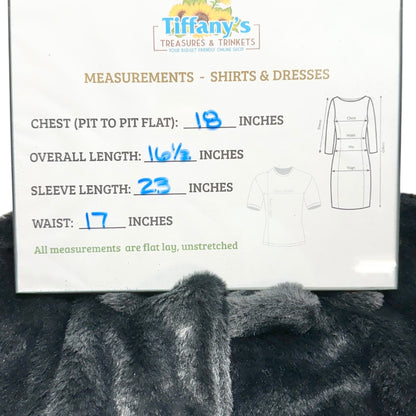 Tiffany's
TREASURES & TRINKETS
YOUR BUDGET FRIENDLY ONLINE SHOP
MEASUREMENTS - SHIRTS & DRESSES
CHEST (PIT TO PIT FLAT): 18 INCHES
OVERALL LENGTH: 16½ INCHES
SLEEVE LENGTH: 23 INCHES
WAIST: 17 INCHES
All measurements are flat lay, unstretched
Chest
Waist
Hip